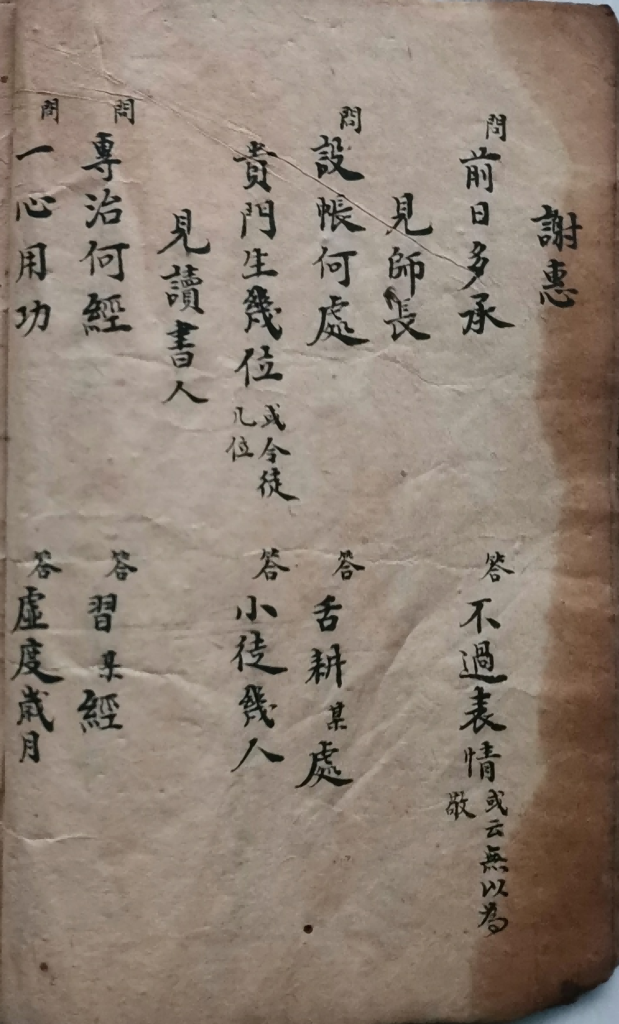 謝惠
問 前日多承 答 不過表情 或云無以為敬
見師長
問 設帳何處 答 舌耕某處
貴門生幾位 或令徒几位 答 小徒幾人
見讀書人
問 專治何經 答 習某經
問 一心用功 答 虛度歲月